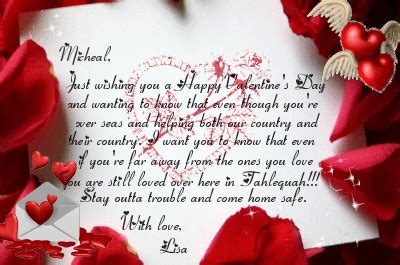 Micheal,
Just wishing you a Happy Valentine's Day
and wanting to know that even though you're
over seas and helping both our country and
their country. I want you to know that even
if you re far away from the ones you love
you are still loved over here in Tahlequah!!!
Stay outta trouble and come home safe.
With love,
Lisa